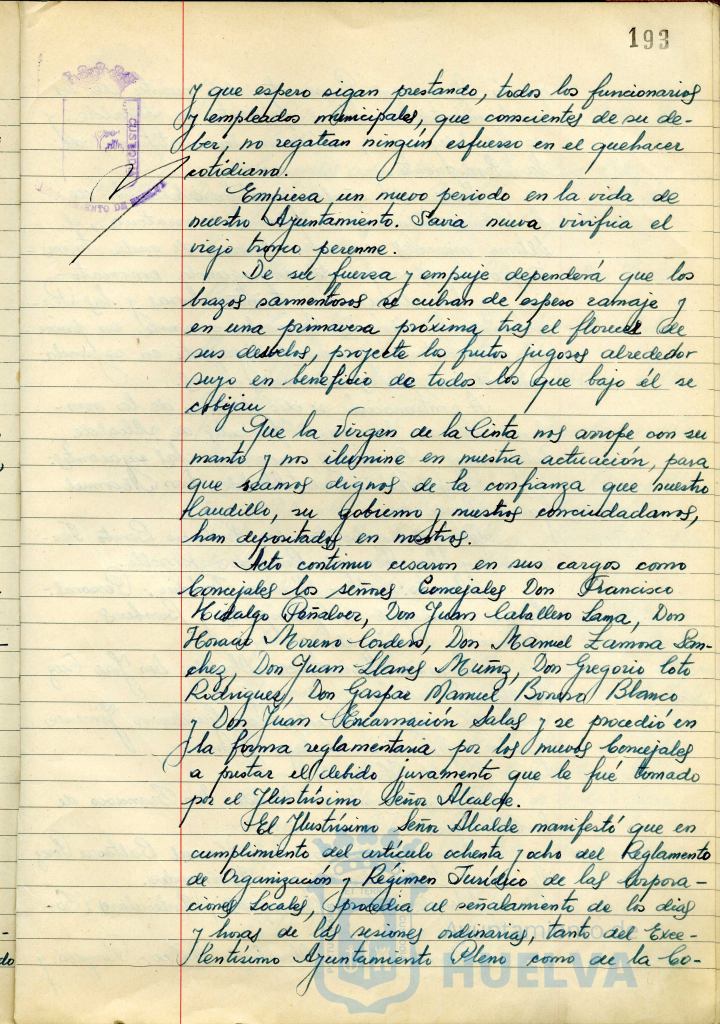 193
y que espero sigan prestando, todos los funcionarios
y empleados municipales, que conscientes de su de-
ber, no regatean ningún esfuerzo en el quehacer
cotidiano.
Empieza un nuevo periodo en la vida de
nuestro Ayuntamiento. Savia nueva vivifica el
viejo tronco perenne.
De su fuerza y empuje dependerá que los
brazos sarmentosos se cubran de espeso ramaje y
en una primavera próxima tras el florecer de
sus desvelos, projecte los frutos jugosos alrededor
suyo en beneficio de todos los que bajo él se
cobijan.
Que la Virgen de la Cinta nos arrope con su
manto y nos ilumine en nuestra actuación, para
que seamos dignos de la confianza que nuestro
Caudillo, su gobierno y nuestros conciudadanos,
han depositados en nosotros.
Acto continuo cesaron en sus cargos como
Concejales los señores Concejales Don Francisco
Hidalgo Peñalver, Don Juan Caballero Lama, Don
Horacio Moreno Cordero, Don Manuel Zamora Sán-
chez, Don Juan Llanes Muñoz, Don Gregorio Coto
Rodriguez, Don Gaspar Manuel Bonoso Blanco
y Don Juan Encarnación Salas y se procedió en
la forma reglamentaria por los nuevos Concejales
a prestar el debido juramento que le fué tomado
por el Ilustrísimo Señor Alcalde.
El Ilustrísimo Señor Alcalde manifestó que en
cumplimiento del artículo ochenta y ocho del Reglamento
de Organización y Régimen Jurídico de las Corpora-
ciones Locales, procedia al señalamiento de los dias
y horas de las sesiones ordinarias, tanto del Exce-
lentísimo Ayuntamiento Pleno como de la Co-
Ayuntamiento de
HUELVA